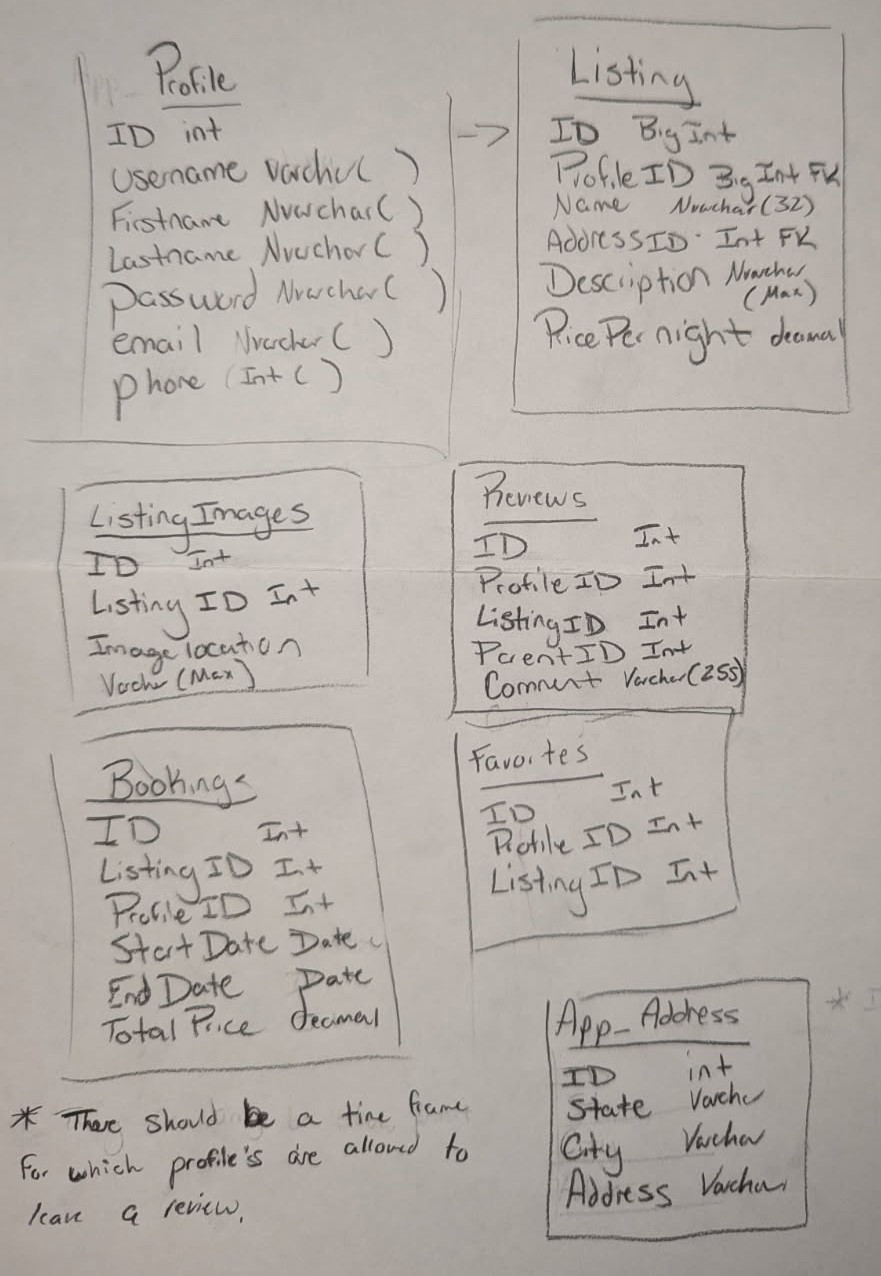 Profile
ID int
Username Varchar( )
Firstname Nvarchar( )
Lastname Nvarchar( )
Password Nvarchar( )
email Nvarchar( )
phone Int( )
->
Listing
ID BigInt
ProfileID BigInt FK
Name Nvarchar(32)
AddressID Int FK
Description Nvarchar
(Max)
PricePernight decimal
ListingImages
ID Int
Listing ID Int
Image location
Varchar (Max)
Reviews
ID Int
Profile ID Int
ListingID Int
ParentID Int
Comment Varchar(255)
Bookings
ID Int
Listing ID Int
Profile ID Int
Start Date Date
End Date Date
Total Price decimal
Favorites
ID Int
Profile ID Int
Listing ID Int
App_Address
ID int
State Varchar
City Varchar
Address Varchar
* There should be a time frame
For which profile's are allowed to
leave a review.
*